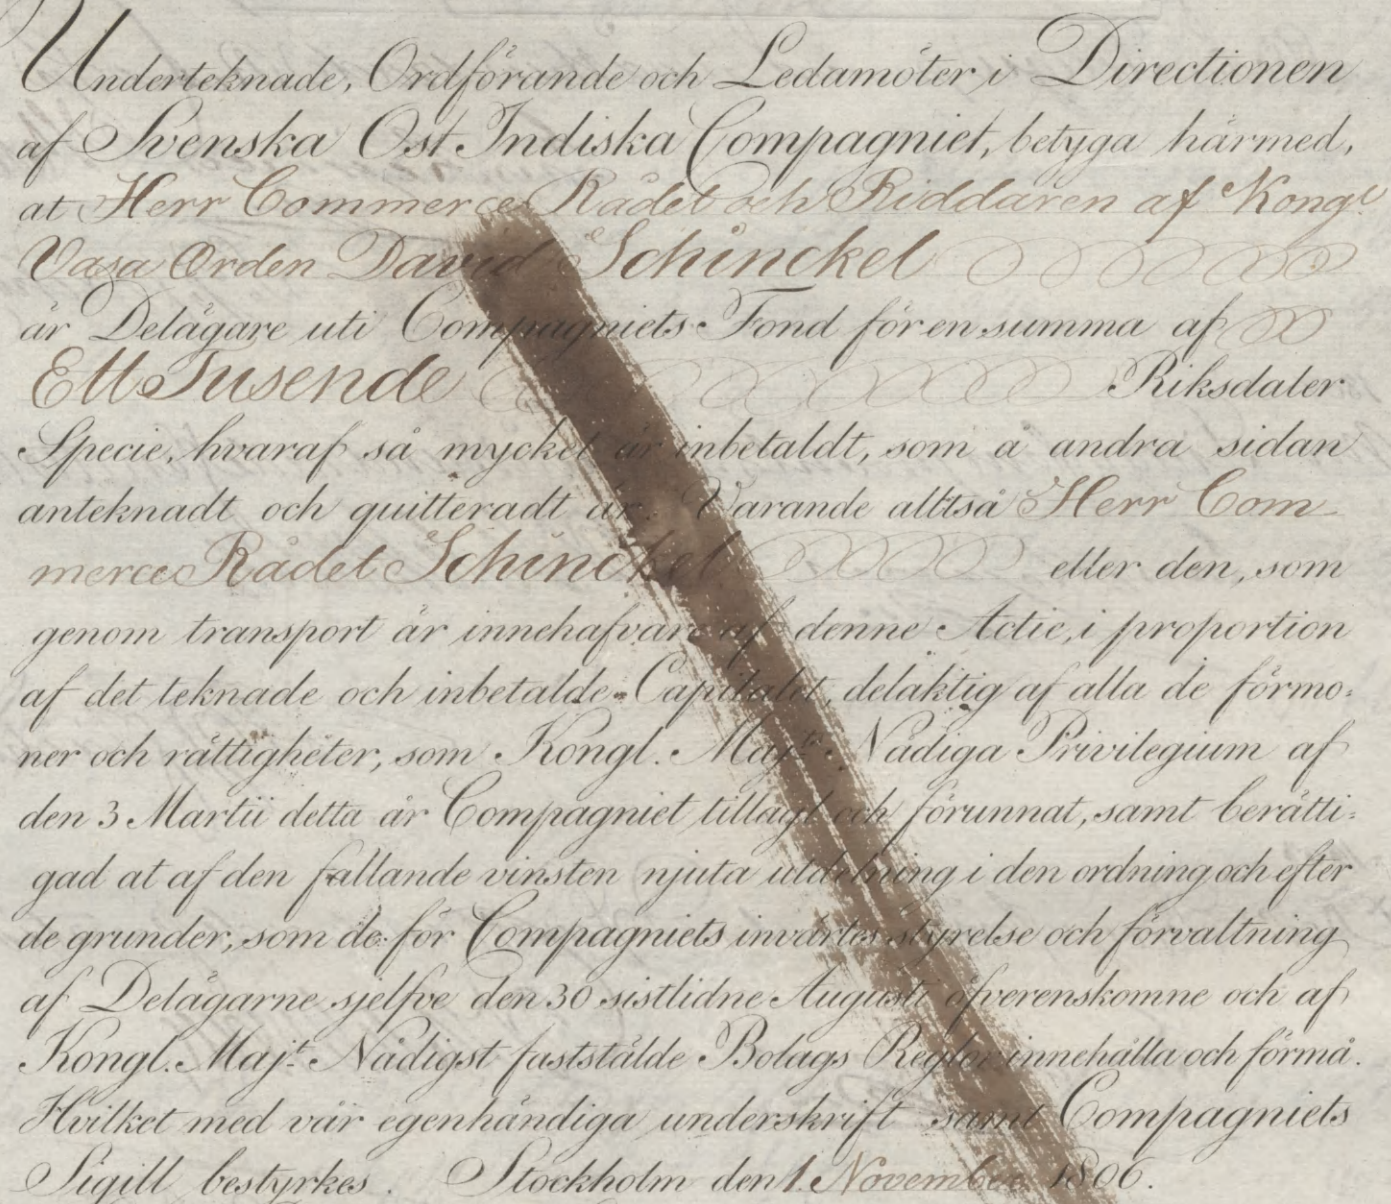 Underteknade, Ordförande och Ledamöter i Directionen
af Svenska Ost Indiska Compagniet, betyga härmed,
at Herr Commerce Rådet och Riddaren af Kongl.
Vasa Orden David Schinckel
är Delägare uti Compagniets Fond för en summa af
Ett Tusende Riksdaler
Specie, hvaraf så mycket är inbetaldt, som a andra sidan
anteknadt och quitteradt är. Varande alltså Herr Com
merce Rådet Schinckel eller den, som
genom transport är innehafvare af denne Actie, i proportion
af det teknade och inbetalde Capitalet, delaktig af alla de förmo:
ner och rättigheter, som Kongl. Maj:ts Nådiga Privilegium af
den 3 Martii detta år Compagniet tillagt och förunnat, samt berätti:
gad at af den fallande vinsten njuta utdelning i den ordning och efter
de grunder, som de för Compagniets invärtes styrelse och förvaltning
af Delägarne sjelfve den 30 sistlidne Augusti öfverenskomne och af
Kongl. Maj:t Nådigst faststälde Bolags Regler innehålla och förmå.
Hvilket med vår egenhändiga underskrift samt Compagniets
Sigill bestyrkes. Stockholm den 1. November 1806.